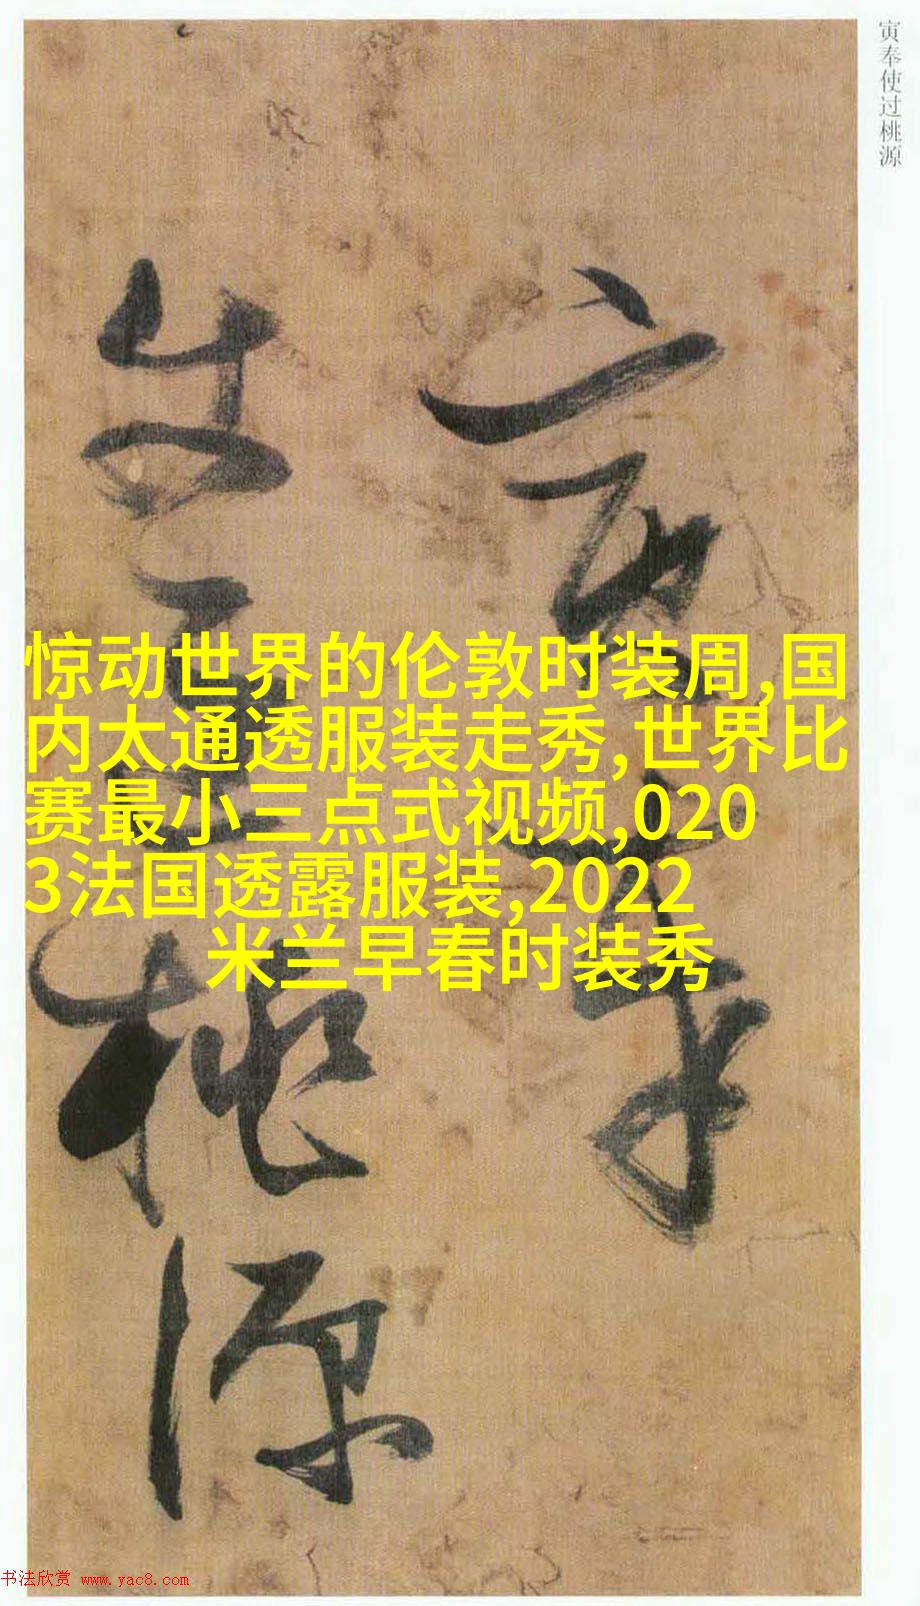 寅奉使过桃源
寅奉
使过桃源
惊动世界的伦敦时装周,国
内太通透服装走秀,世界比
赛最小三点式视频,020
3法国透露服装,2022
米兰早春时装秀
书法欣赏 www.yac8.com